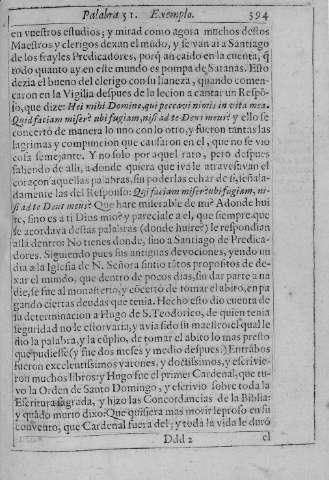 Palabra 51. Exemplo. 594
en vuestros estudios; y mirad como agora muchos destos
Maestros y clerigos dexan el mũdo, y se van ai a Santiago
de los frayles Predicadores, porq̃ an caido en la cuenta, q̃
todo quanto ay en este mundo es pompa de Satanas. Esto
dezia el bueno del clerigo con su llaneza, quando comen-
çaron en la Vigilia despues de la lecion a cantar un Respõ-
so, que dize: Hei mihi Domine, qui peccavi nimis in vita mea.
Quid faciam miser? ubi fugiam, nisi ad te Deus meus? y ello se
concertó de manera lo uno con lo otro, y fueron tantas las
lagrimas y compuncion que causaron en el, que no se vio
cosa semejante. Y no solo por aquel rato, pero despues
saliendo de alli, a donde quiera que iva le atravesavan el
coraçon aquellas palabras, sin poderlas echar de si, señala-
damente las del Responso: Quid faciam miser? ubi fugiam, ni-
si ad te Deus meus? Que hare miserable de mi? Adonde hui-
re, sino es a ti Dios mio? y pareciale a el, que siempre que
se acordava destas palabras (donde huire?) le respondian
alla dentro: No tienes donde, sino a Santiago de Predica-
dores. Siguiendo pues sus antiguas devociones, yendo un
dia a la Iglesia de N. Señora sintio tãtos propositos de de-
xar el mundo, que dentro de pocos dias, sin dar parte a na-
die, se fue al monasterio, y cõcertó de tomar el abito, en pa-
gando ciertas deudas que tenia. Hecho esto dio cuenta de
su determinacion a Hugo de S. Teodorico, de quien tenia
seguridad no le estorvaria, y avia sido su maestro: el qual le
dio la palabra, y la cũplio, de tomar el abito lo mas presto
que pudiesse (y fue dos meses y medio despues.) Entrãbos
fueron excelentissimos varones, y doctissimos, y escrivie-
ron muchos libros: y Hugo fue el primer Cardenal, que tu-
vo la Orden de Santo Domingo, y escrivio sobre toda la
Escritura sagrada, y hizo las Concordancias de la Biblia:
y quãdo murio dixo: Que quisiera mas morir leproso en su
convento, que Cardenal fuera del; y toda la vida le duró
Ddd 2 el